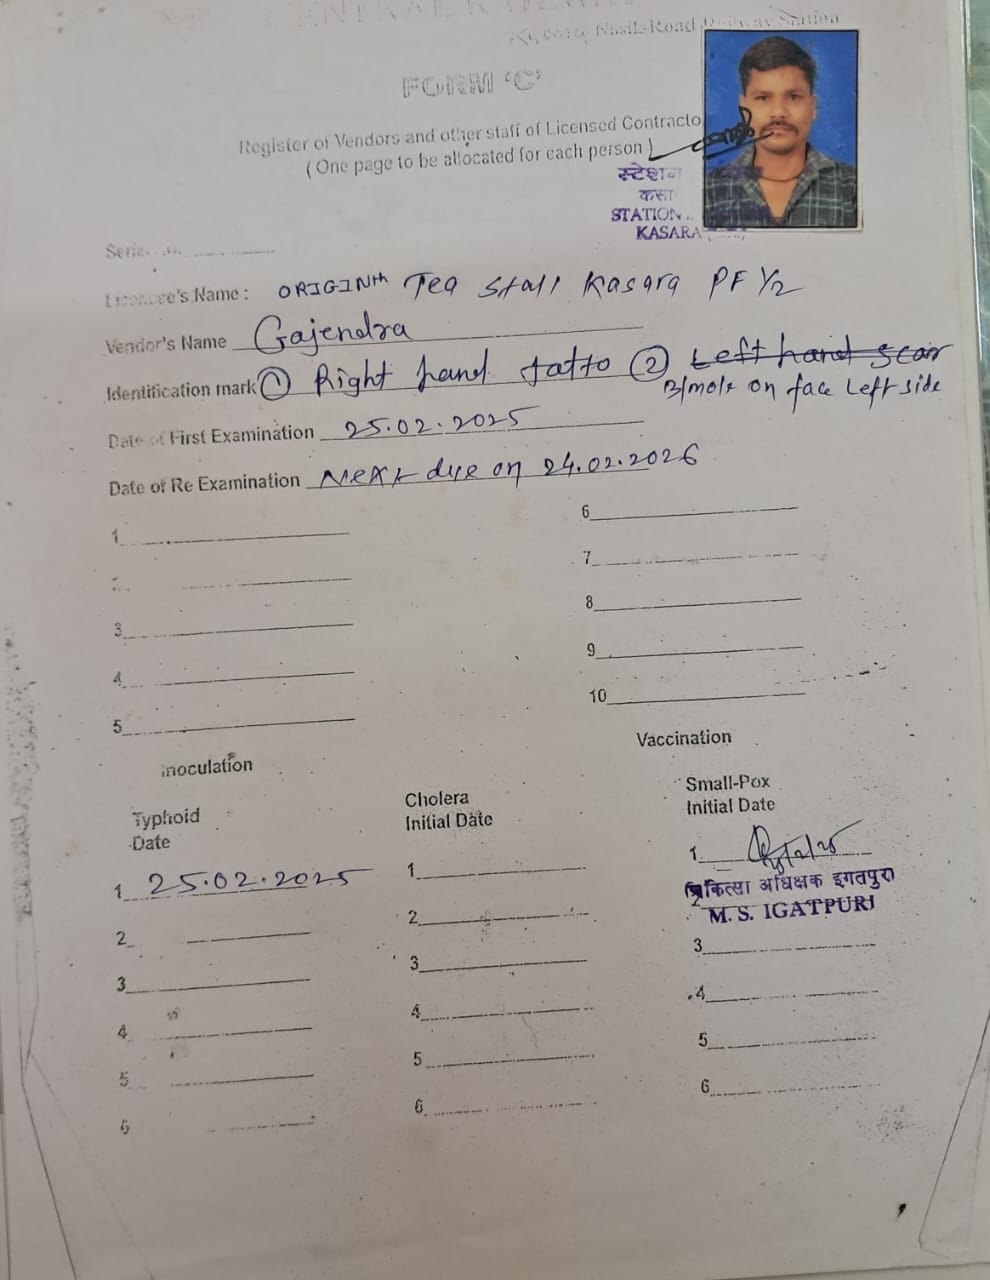 CENTRAL RAILWAY
Kasara Nasik Road Railway Station
FORM 'C'
Register of Vendors and other staff of Licensed Contracto
( One page to be allocated for each person )
स्टेशन
कसा
STATION
KASARA
Licencee's Name : ORIGINth Tea Stall Kasara PF 1/2
Vendor's Name Gajendra
Identification mark ① Right hand tatto ② Left hand scar
B/mole on face Left side
Date of First Examination 25.02.2025
Date of Re Examination Next due on 24.02.2026
1
2.
3
4
5
6
7
8
9
10
Inoculation
Vaccination
Typhoid
Date
1 25.02.2025
2
3
4
5
6
Cholera
Initial Date
1
2
3
4
5
6
Small-Pox
Initial Date
1
चिकित्सा अधिक्षक इगतपुरी
M. S. IGATPURI
3
4
5
6